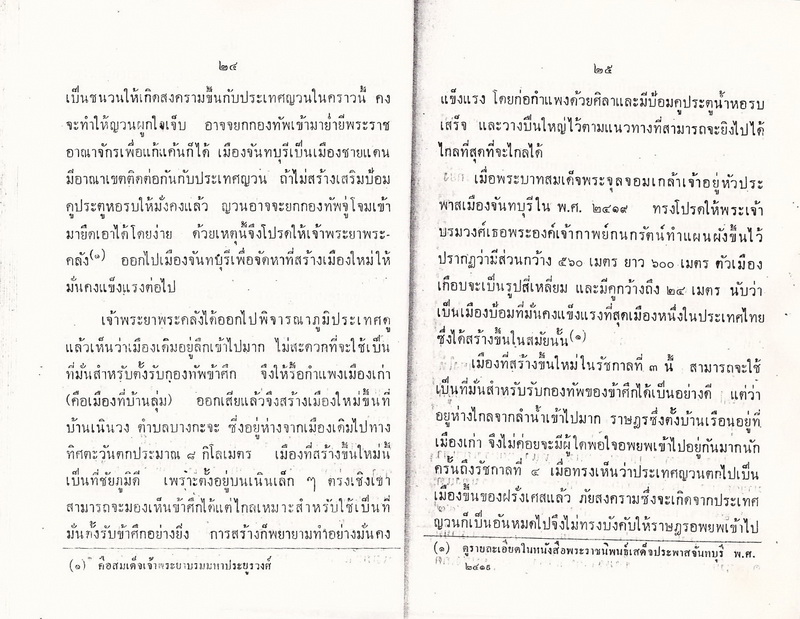 ๒๔
เป็นชนวนให้เกิดสงครามขึ้นกับประเทศญวนในคราวนี้ คง
จะทำให้ญวนผูกใจเจ็บ อาจจยกกองทัพเข้ามาย่ำยีพระราช
อาณาจักรเพื่อแก้แค้นก็ได้ เมืองจันทบุรีเป็นเมืองชายแดน
มีอาณาเขตติดต่อกันกับประเทศญวน ถ้าไม่สร้างเสริมป้อม
คูประตูหอรบให้มั่งคงแล้ว ญวนอาจจะยกกองทัพจู่โจมเข้า
มายึดเอาได้โดยง่าย ด้วยเหตุนี้จึงโปรดให้เจ้าพระยาพระ-
คลัง(๑) ออกไปเมืองจันทบุรีเพื่อจัดหาที่สร้างเมืองใหม่ให้
มั่นคงแข็งแรงต่อไป
เจ้าพระยาพระคลังได้ออกไปพิจารณาภูมิประเทศดู
แล้วเห็นว่าเมืองเดิมอยู่ลึกเข้าไปมาก ไม่สะดวกที่จะใช้เป็น
ที่มั่นสำหรับตั้งรับกองทัพข้าศึก จึงให้รื้อกำแพงเมืองเก่า
(คือเมืองที่บ้านลุ่ม) ออกเสียแล้วจึงสร้างเมืองใหม่ขึ้นที่
บ้านเนินวง ตำบลบางกะจะ ซึ่งอยู่ห่างจากเมืองเดิมไปทาง
ทิศตะวันตกประมาณ ๘ กิโลเมตร เมืองที่สร้างขึ้นใหม่นี้
เป็นที่ชัยภูมิดี เพราะตั้งอยู่บนเนินเล็ก ๆ ตรงเชิงเขา
สามารถจะมองเห็นข้าศึกได้แต่ไกลเหมาะสำหรับใช้เป็นที่
มั่นตั้งรับข้าศึกอย่างยิ่ง การสร้างก็พยายามทำอย่างมั่นคง
(๑) คือสมเด็จเจ้าพระยาบรมมหาประยูรวงศ์
๒๕
แข็งแรง โดยก่อกำแพงด้วยศิลาและมีป้อมคูประตูน้ำหอรบ
เสร็จ และวางปืนใหญ่ไว้ตามแนวทางที่สามารถจะยิงไปได้
ไกลที่สุดที่จะไกลได้
เมื่อพระบาทสมเด็จพระจุลจอมเกล้าเจ้าอยู่หัวประ
พาสเมืองจันทบุรีใน พ.ศ. ๒๔๑๙ ทรงโปรดให้พระเจ้า
บรมวงศ์เธอพระองค์เจ้ากาพย์กนกรัตน์ทำแผนผังขึ้นไว้
ปรากฏว่ามีส่วนกว้าง ๕๖๐ เมตร ยาว ๖๐๐ เมตร ตัวเมือง
เกือบจะเป็นรูปสี่เหลี่ยม และมีคูกว้างถึง ๒๔ เมตร นับว่า
เป็นเมืองป้อมที่มั่นคงแข็งแรงที่สุดเมืองหนึ่งในประเทศไทย
ซึ่งได้สร้างขึ้นในสมัยนั้น(๑)
เมืองที่สร้างขึ้นใหม่ในรัชกาลที่ ๓ นี้ สามารถจะใช้
เป็นที่มั่นสำหรับรับกองทัพของข้าศึกได้เป็นอย่างดี แต่ว่า
อยู่ห่างไกลจากลำน้ำเข้าไปมาก ราษฎรซึ่งตั้งบ้านเรือนอยู่ที่
เมืองเก่า จึงไม่ค่อยจะมีผู้ใดพอใจอพยพเข้าไปอยู่กันมากนัก
ครั้นถึงรัชกาลที่ ๔ เมื่อทรงเห็นว่าประเทศญวนตกไปเป็น
เมืองขึ้นของฝรั่งเศสแล้ว ภัยสงครามซึ่งจะเกิดจากประเทศ
ญวนก็เป็นอันหมดไปจึงไม่ทรงบังคับให้ราษฎรอพยพเข้าไป
(๑) ดูรายละเอียดในหนังสือพระราชนิพนธ์เสด็จประพาสจันทบุรี พ.ศ.
๒๔๑๙